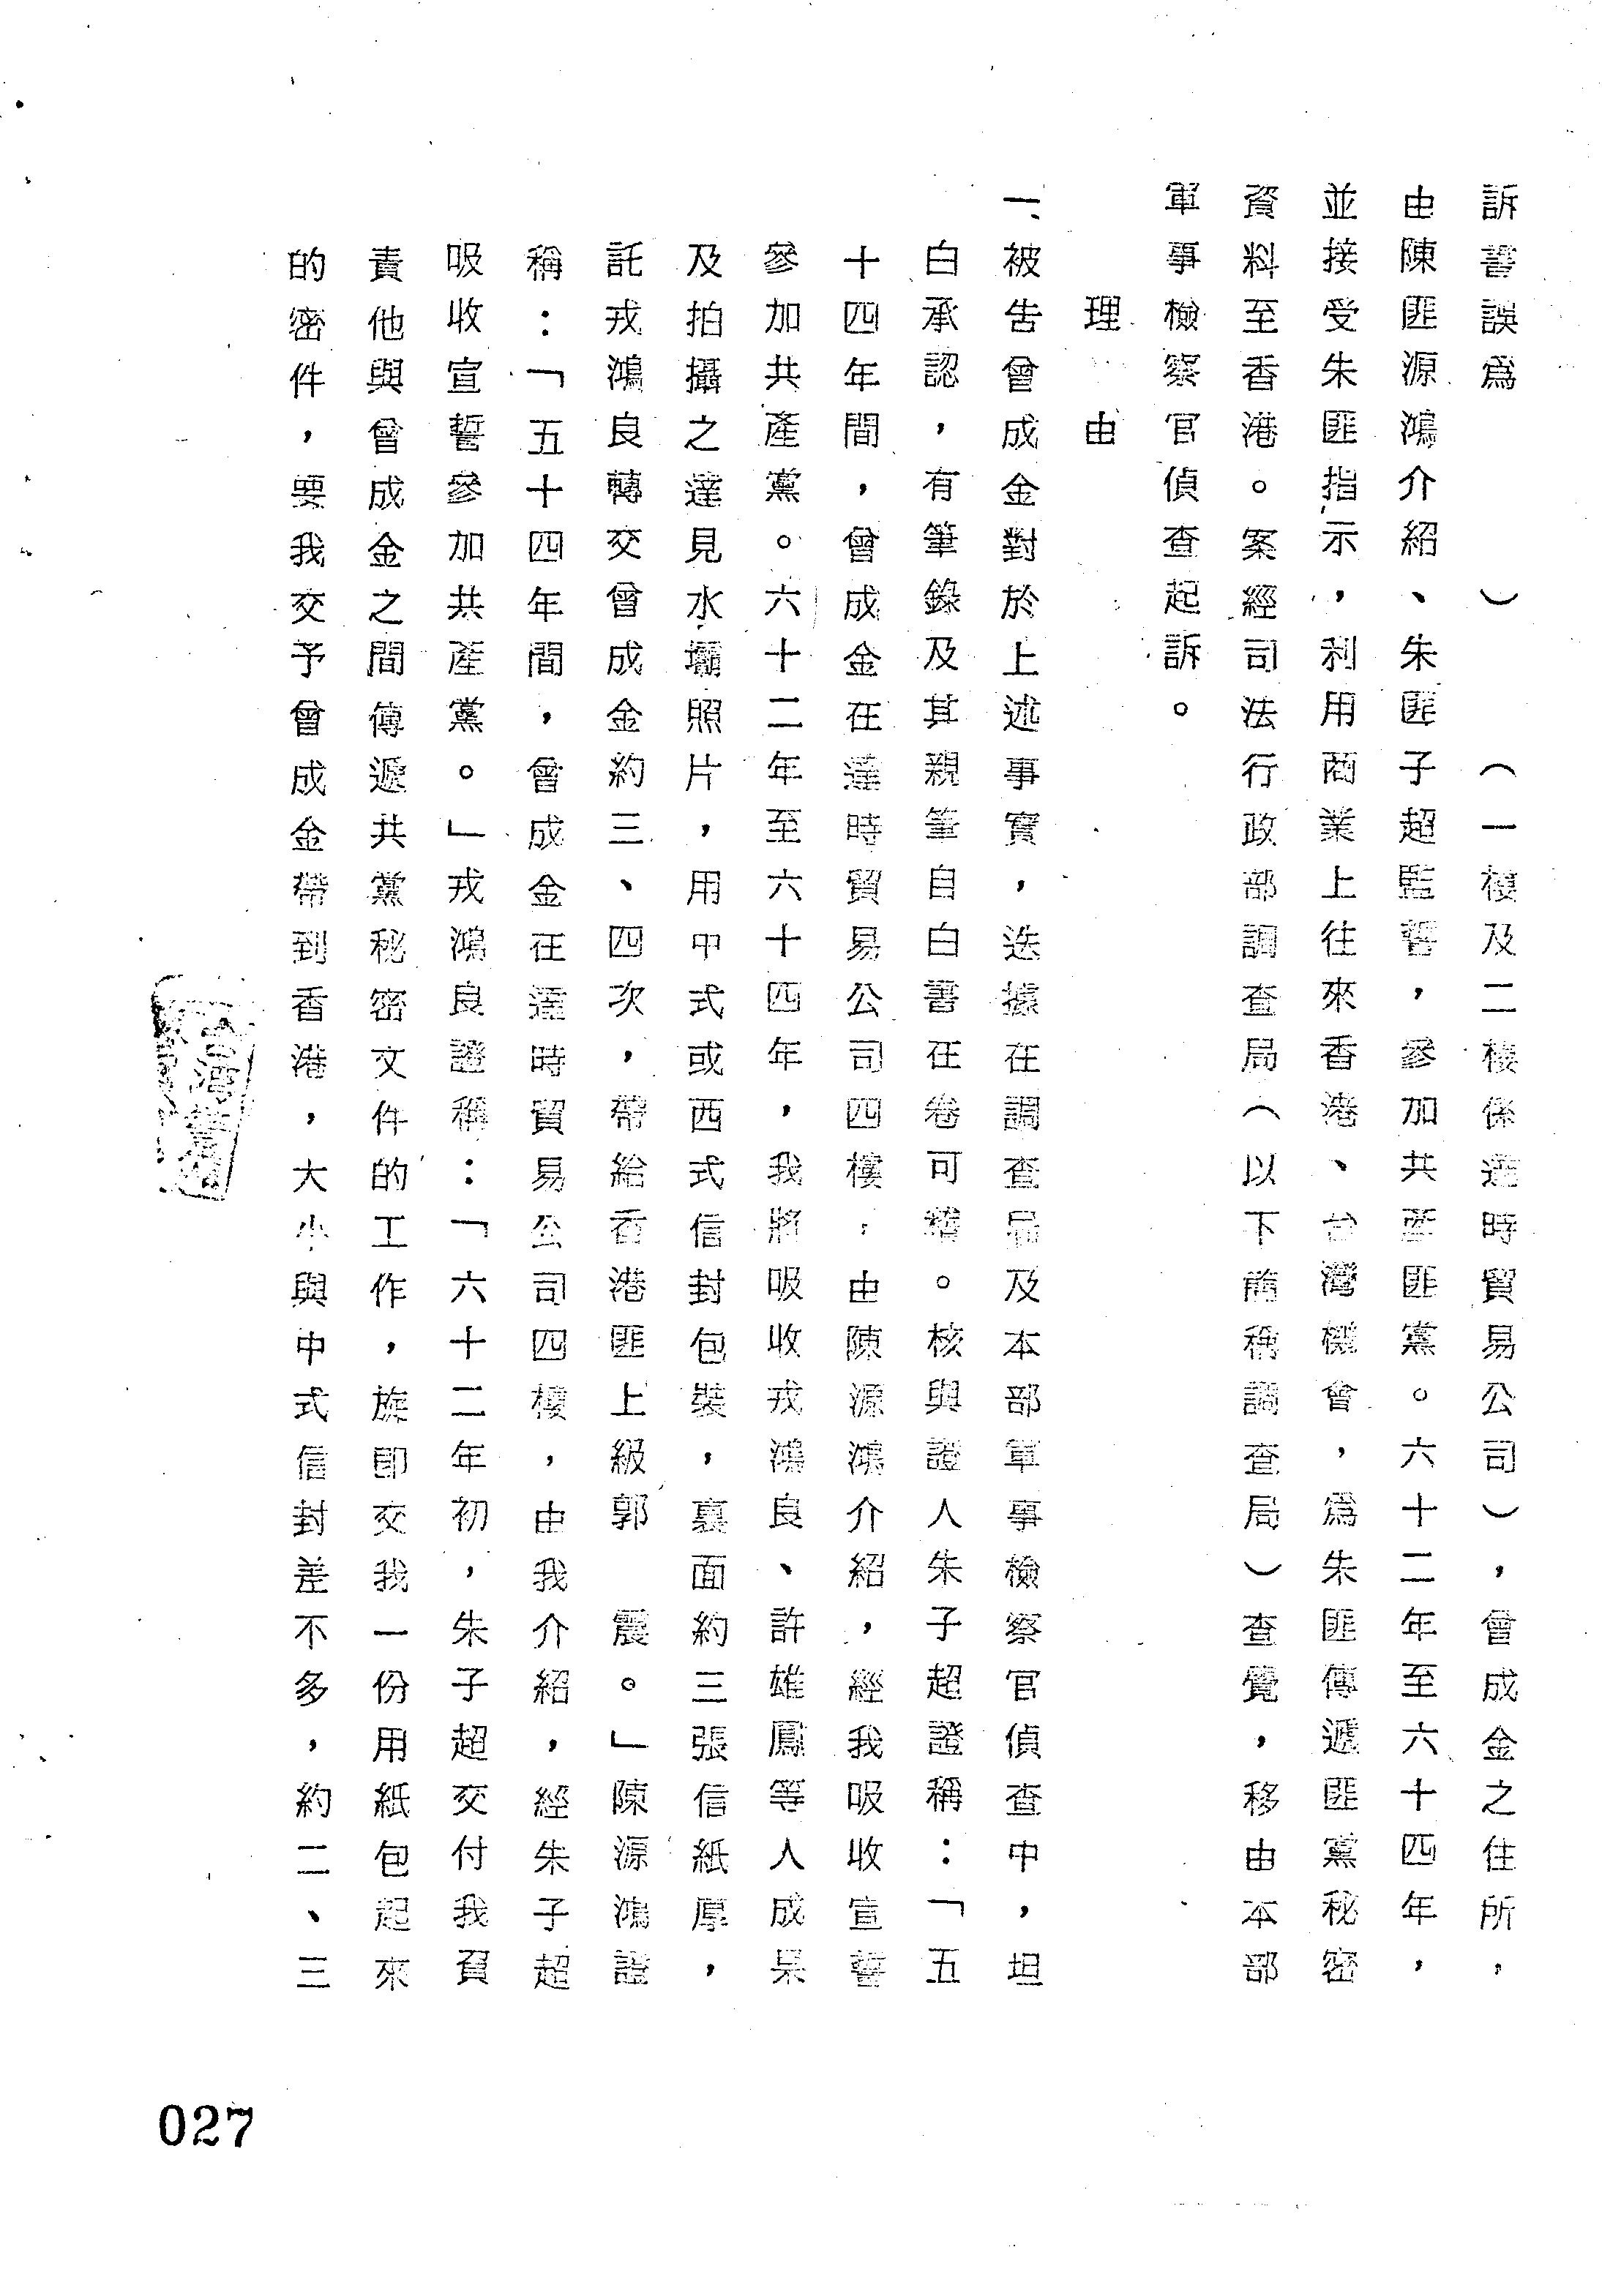 訴書誤爲　　　）　　（一樓及二樓係達時貿易公司），曾成金之住所，
由陳匪源鴻介紹、朱匪子超監誓，參加共產匪黨。六十二年至六十四年，
並接受朱匪指示，利用商業上往來香港、台灣機會，爲朱匪傳遞匪黨秘密
資料至香港。案經司法行政部調查局（以下簡稱調查局）查覺，移由本部
軍事檢察官偵查起訴。
理　由
一、被告曾成金對於上述事實，迭據在調查局及本部軍事檢察官偵查中，坦
白承認，有筆錄及其親筆自白書在卷可稽。核與證人朱子超證稱：「五
十四年間，曾成金在達時貿易公司四樓，由陳源鴻介紹，經我吸收宣誓
參加共產黨。六十二年至六十四年，我將吸收戎鴻良、許雄鳳等人成果
及拍攝之達見水壩照片，用中式或西式信封包裝，裏面約三張信紙厚，
託戎鴻良轉交曾成金約三、四次，帶給香港匪上級郭　震。」陳源鴻證
稱：「五十四年間，曾成金在達時貿易公司四樓，由我介紹，經朱子超
吸收宣誓參加共產黨。」戎鴻良證稱：「六十二年初，朱子超交付我負
責他與曾成金之間傳遞共黨秘密文件的工作，旋即交我一份用紙包起來
的密件，要我交予曾成金帶到香港，大小與中式信封差不多，約二、三
027